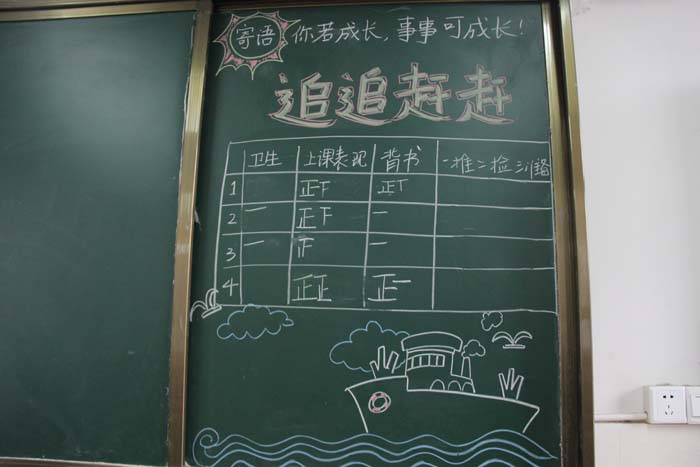 寄语 你若成长,事事可成长!
追追赶赶
卫生 上课表现 背书 一推二捡三准备
1 正下 正丅
2 一 正下 一
3 一 正 一
4 正正 正一